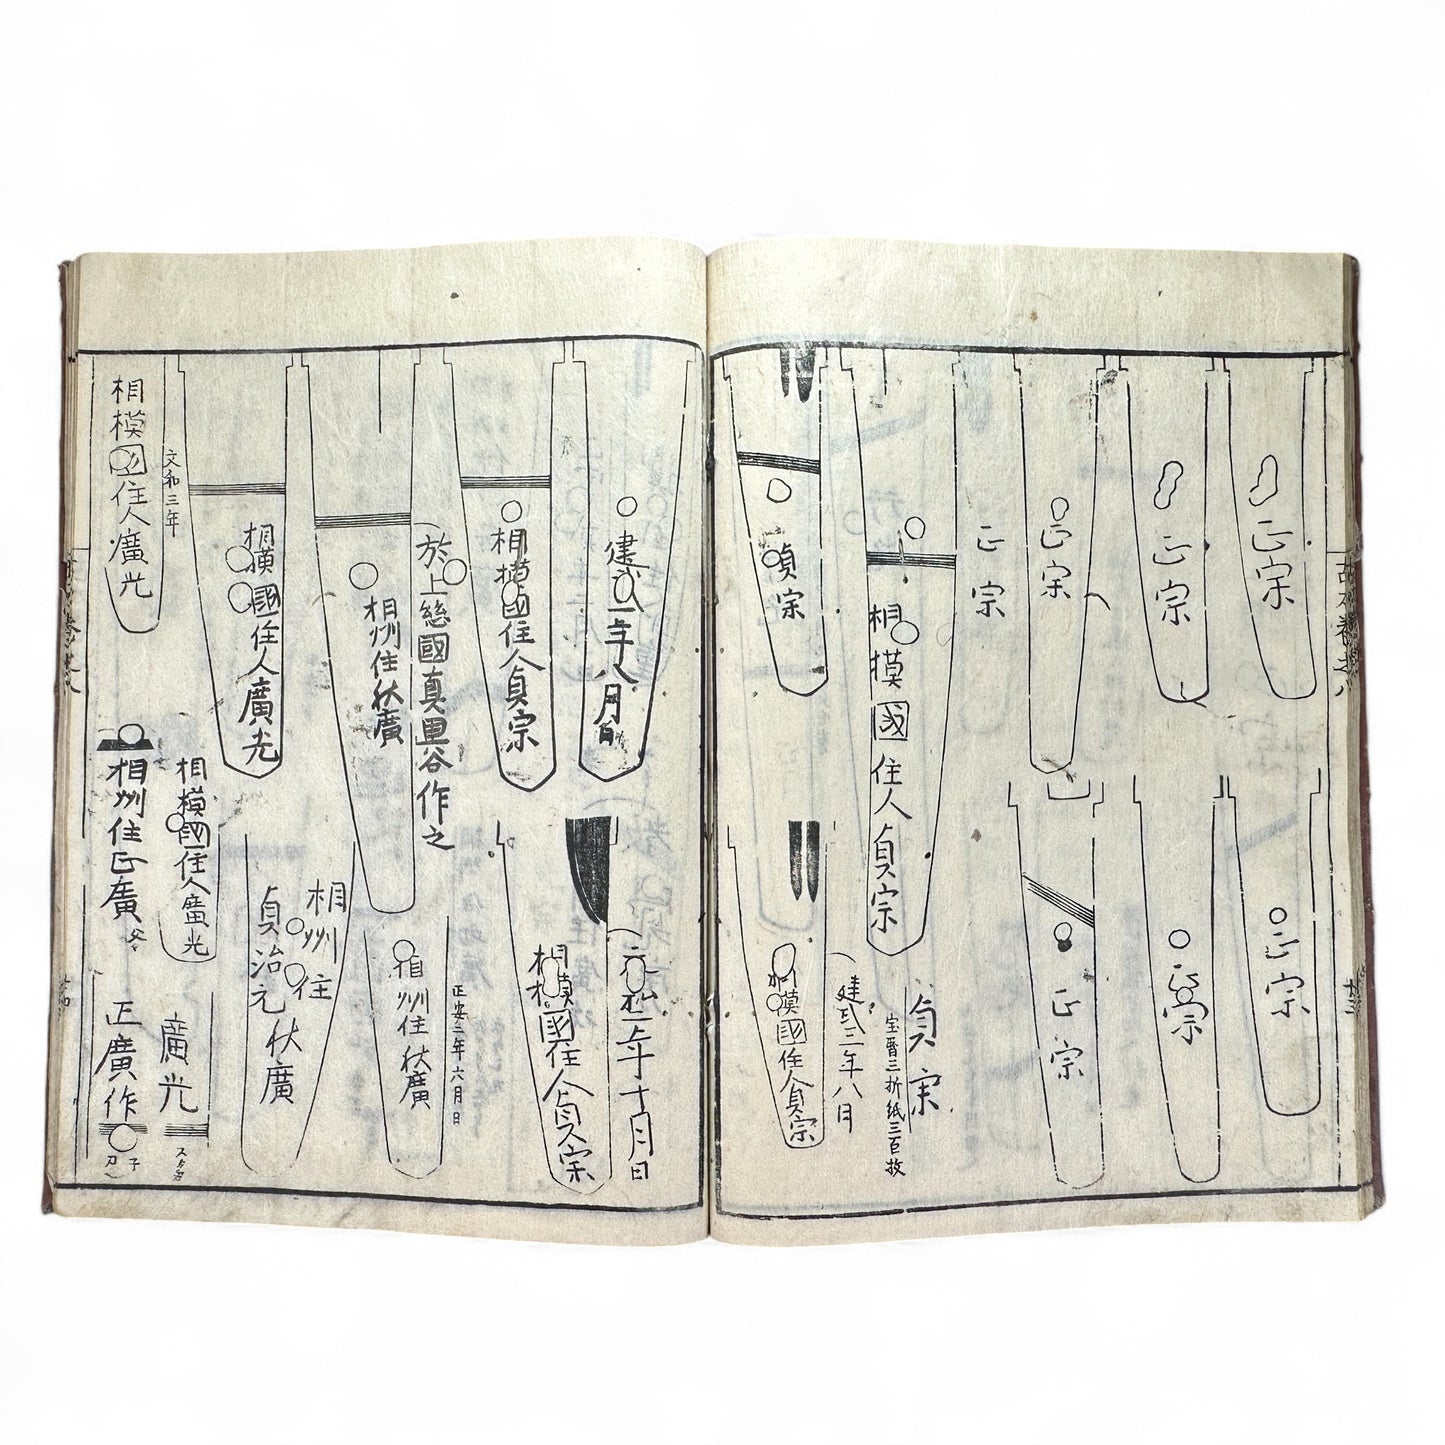 正宗
正宗
正宗
正宗
正宗
正宗
正宗
相摸國住人貞宗
貞宗
宝暦三折紙三百枚
貞宗
建武二年八月
相模國住人貞宗
建武二年八月日
相模國住人貞宗
元弘二年十月日
相模國住人貞宗
於上総國真里谷作之
相州住秋廣
正安二年六月日
相州住秋廣
相模國住人廣光
相州住秋廣
貞治元
文和三年
相模國住人廣光
相模國住人廣光
廣光
相州住正廣
正廣作